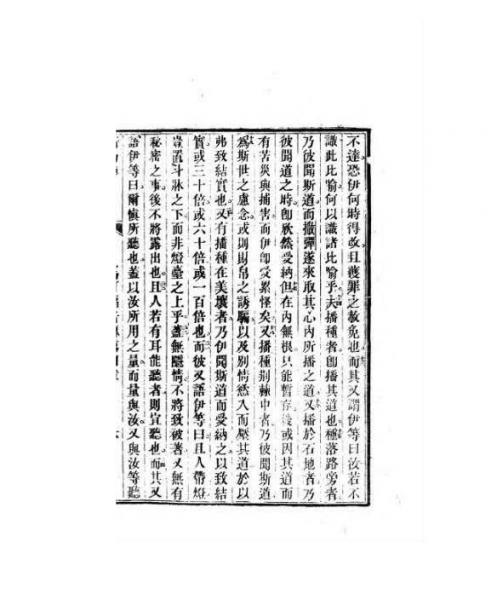 不達恐伊何時得改且獲罪之赦免也而其又謂伊等曰汝若不
識此比喻何以識諸比喻乎夫播種者即播其道也種落路旁者
乃彼聞斯道而撒彈遂來取其心內所播之道又播於石地者乃
彼聞道之時即欣然受納但在內無根只能暫存後或因其道而
有苦災與捕害而伊即受累怪矣又播種荊棘中者乃彼聞斯道
為斯世之慮念或則財帛之誘騙以及別情然入而壓其道於以
弗致結實也又有播種在美壤者乃伊聞斯道而愛納之以致結
實或三十倍或六十倍或一百倍也而彼又語伊等曰且人帶燈
豈置斗牀之下而非燈臺之上乎蓋無隱情不將致彼著又無有
秘密之事後不將露出也且人若有耳能聽者則宜聽也而其又
語伊等曰爾慎所聽也蓋以汝所用之量而量與汝又與汝等聽